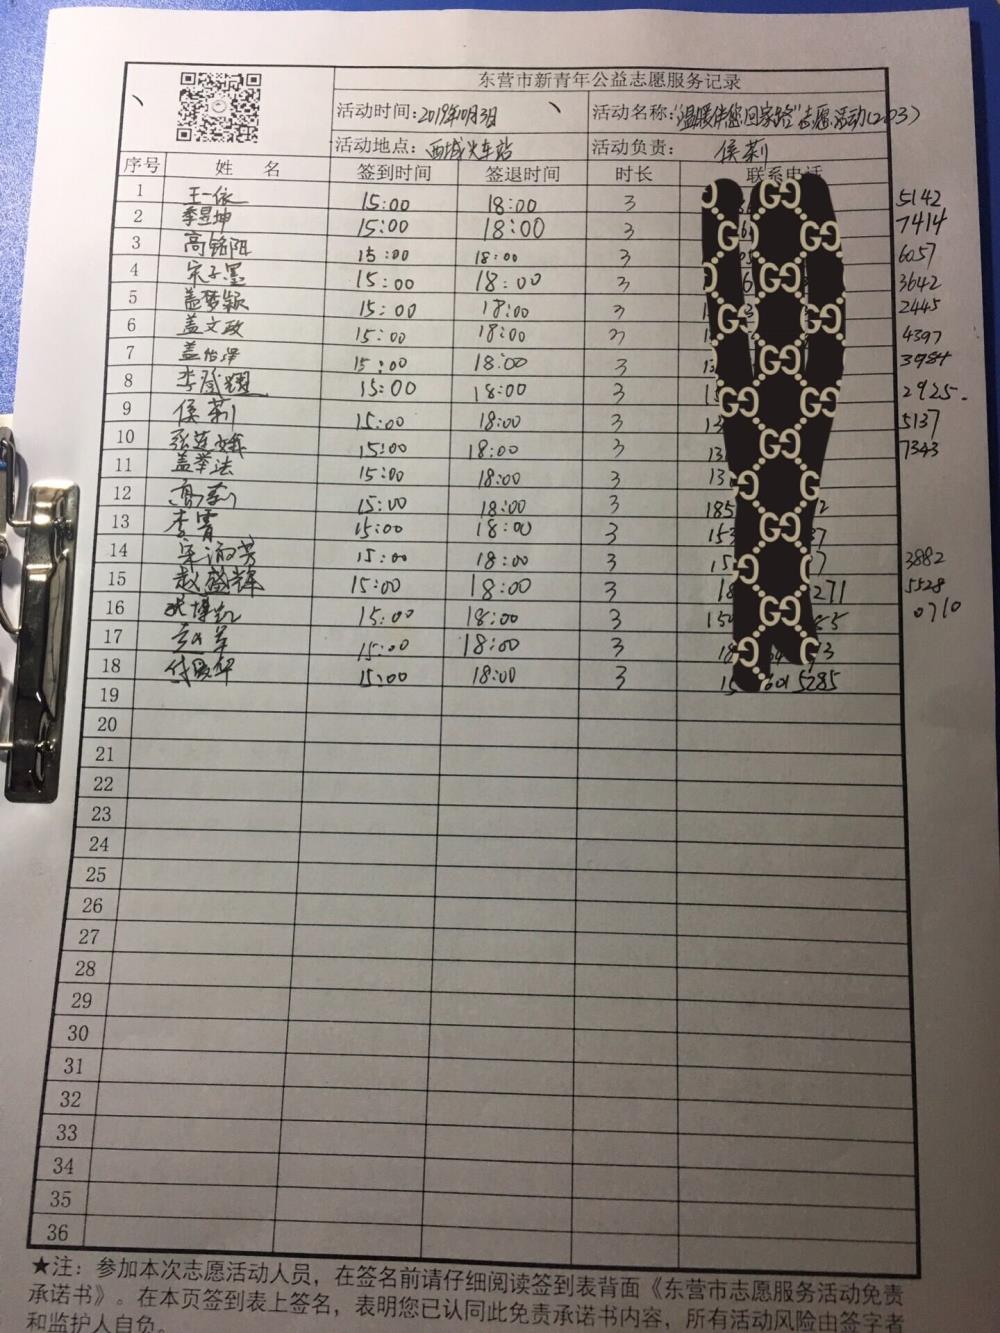 东营市新青年公益志愿服务记录
活动时间：2019年10月3日 活动名称："温暖伴您回家路"志愿活动(203)
活动地点：西城火车站 活动负责：侯莉
序号 姓名 签到时间 签退时间 时长 联系电话
1 王一依 15:00 18:00 3 5142
2 李昱坤 15:00 18:00 3 7414
3 高铭阳 15:00 18:00 3 6057
4 宋子墨 15:00 18:00 3 3642
5 盖梦颖 15:00 18:00 3 2445
6 盖文政 15:00 18:00 3 4397
7 盖怡泽 15:00 18:00 3 3984
8 李 15:00 18:00 3 2925.
9 侯莉 15:00 18:00 3 5137
10 张莲娥 15:00 18:00 3 7343
11 盖举法 15:00 18:00 3
12 高莉 15:00 18:00 3 185
13 李霄 15:00 18:00 3 153
14 宋淑芳 15:00 18:00 3 3882
15 赵盛辉 15:00 18:00 3 271 5528
16 博 15:00 18:00 3 150 0710
17 15:00 18:00 3
18 付 15:00 18:00 3 5285
19
20
21
22
23
24
25
26
27
28
29
30
31
32
33
34
35
36
★注：参加本次志愿活动人员，在签名前请仔细阅读签到表背面《东营市志愿服务活动免责
承诺书》。在本页签到表上签名，表明您已认同此免责承诺书内容，所有活动风险由签字者
和监护人自负。